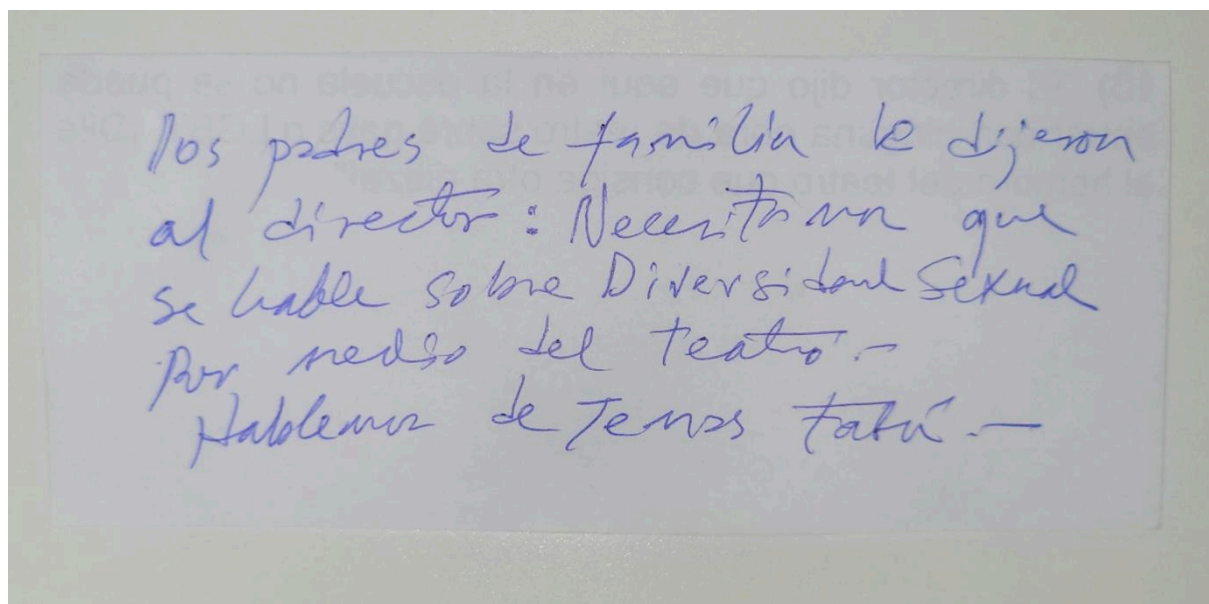 los padres de familia le dijeron
al director: Necesitamos que
se hable sobre Diversidad Sexual
Por medio del teatro.-
Hablemos de Temas tabú.-